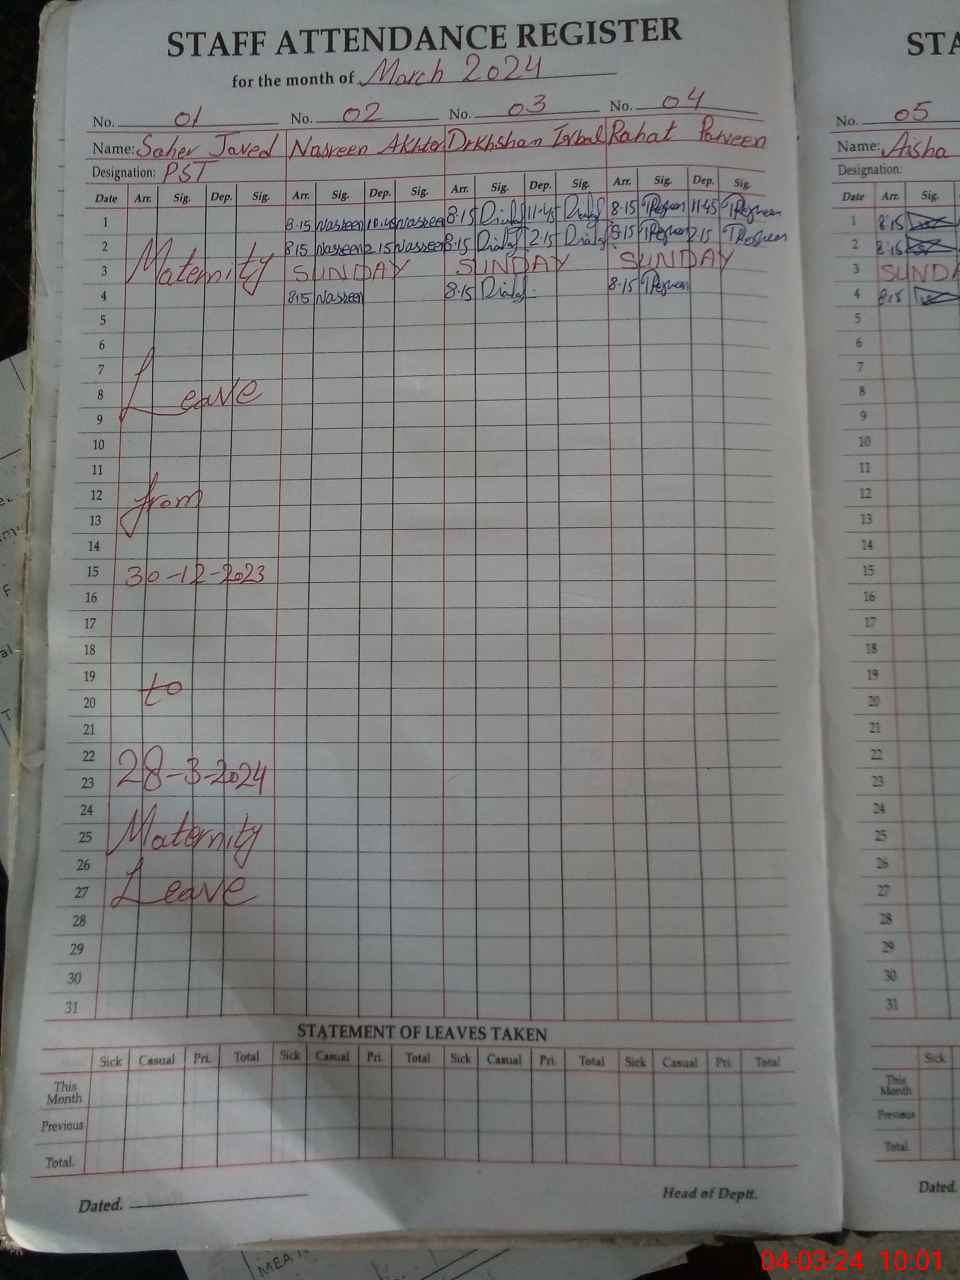 STAFF ATTENDANCE REGISTER
for the month of March 2024
No. 01 No. 02 No. 03 No. 04
Name: Saher Javed Nasreen Akhtar Drkhshan Iqbal Rahat Parveen
Designation: PST
Date Arr. Sig. Dep. Sig. Arr. Sig. Dep. Sig. Arr. Sig. Dep. Sig. Arr. Sig. Dep. Sig.
1 8·15 Nasreen Nasreen 8·15 11·45 8·15 11·45
2 8·15 Nasreen 2·15 Nasreen 8·15 2·15 8·15 2·15
3 Maternity SUNDAY SUNDAY SUNDAY
4 8·15 Nasreen 8·15 8·15
5
6
7
8 Leave
9
10
11
12 from
13
14
15 30-12-2023
16
17
18
19
20 to
21
22
23 28-3-2024
24
25 Maternity
26
27 Leave
28
29
30
31
STATEMENT OF LEAVES TAKEN
Sick Casual Pri. Total Sick Casual Pri. Total Sick Casual Pri. Total Sick Casual Pri. Total
This Month
Previous
Total.
Dated. Head of Deptt.
STA
No. 05
Name: Aisha
Designation:
Date Arr. Sig.
1 8·15
2 8·15
3 SUNDA
4 8·15
5
6
7
8
9
10
11
12
13
14
15
16
17
18
19
20
21
22
23
24
25
26
27
28
29
30
31
Sick
This Month
Previous
Total.
Dated.
04-03-24 10:01